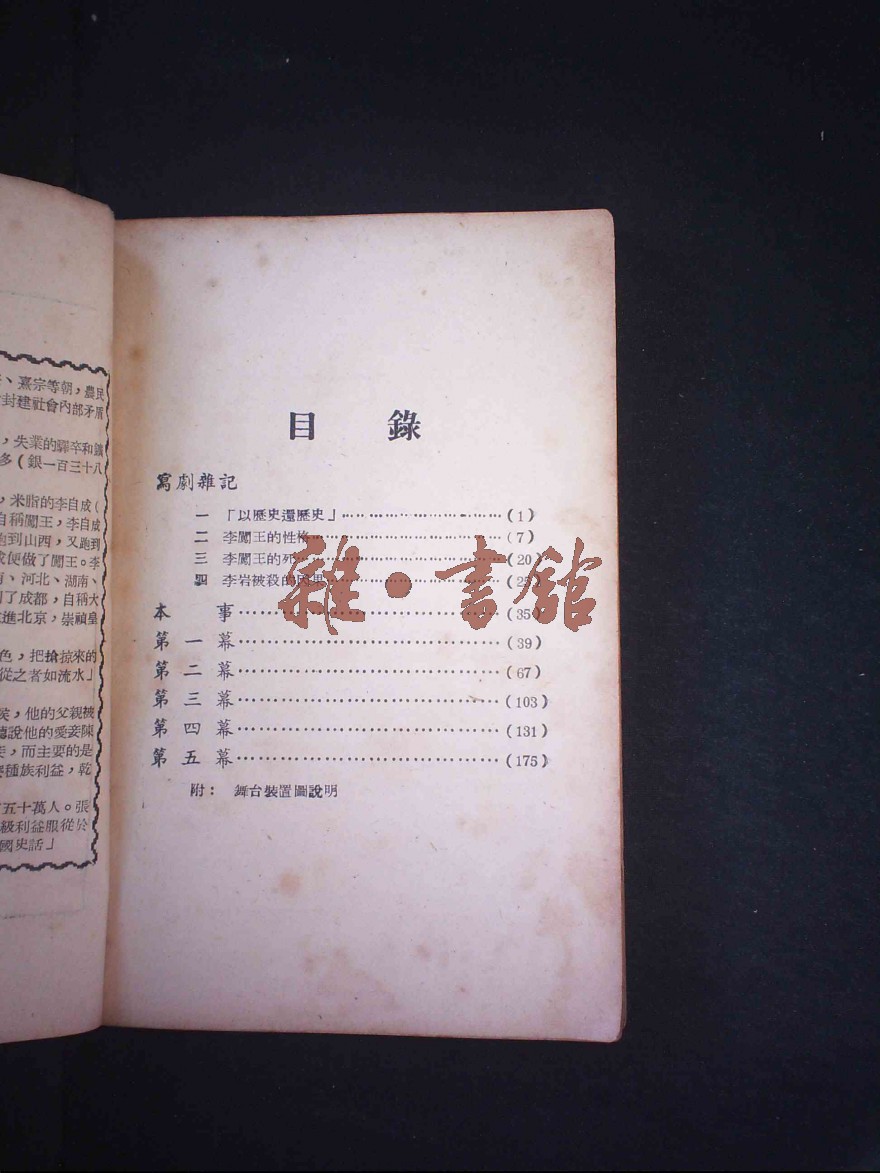 目錄
寫劇雜記
一 「以歷史還歷史」………………………(1)
二 李闖王的性格………………………(7)
三 李闖王的死………………………(20)
四 李岩被殺的因果………………………(25)
本事………………………(35)
第一幕………………………(39)
第二幕………………………(67)
第三幕………………………(103)
第四幕………………………(131)
第五幕………………………(175)
附: 舞台裝置圖說明
雜·書館
、熹宗等朝,農民
封建社會內部矛盾
,失業的驛卒和鐵
多(銀一百三十八
,米脂的李自成(
自稱闖王,李自成
跑到山西,又跑到
便做了闖王。李
、河北、湖南、
了成都,自稱大
進北京,崇禎皇
色,把搶掠來的
從之者如流水」
侯,他的父親被
說他的愛妾陳
,而主要的是
種族利益,乾
五十萬人。張
級利益服從於
國史話」